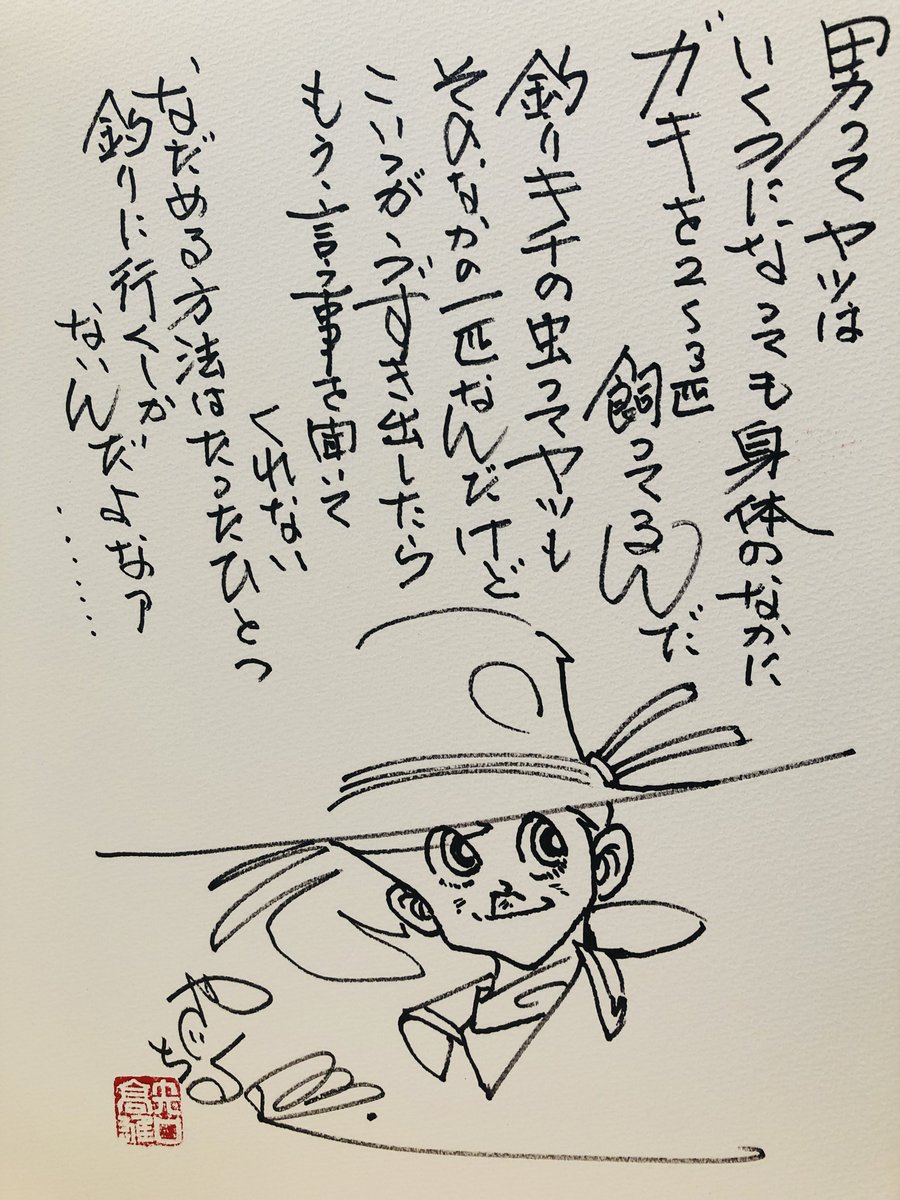 男ってヤツは
いくつになっても身体のなかに
ガキを2〜3匹
飼ってるんだ
釣りキチの虫ってヤツも
そのなかの一匹なんだけど
こいつがうずき出したら
もう、言う事を聞いて
くれない
なだめる方法はたったひとつ
釣りに行くしか
ないんだよなァ
‥‥‥
矢口
高雄